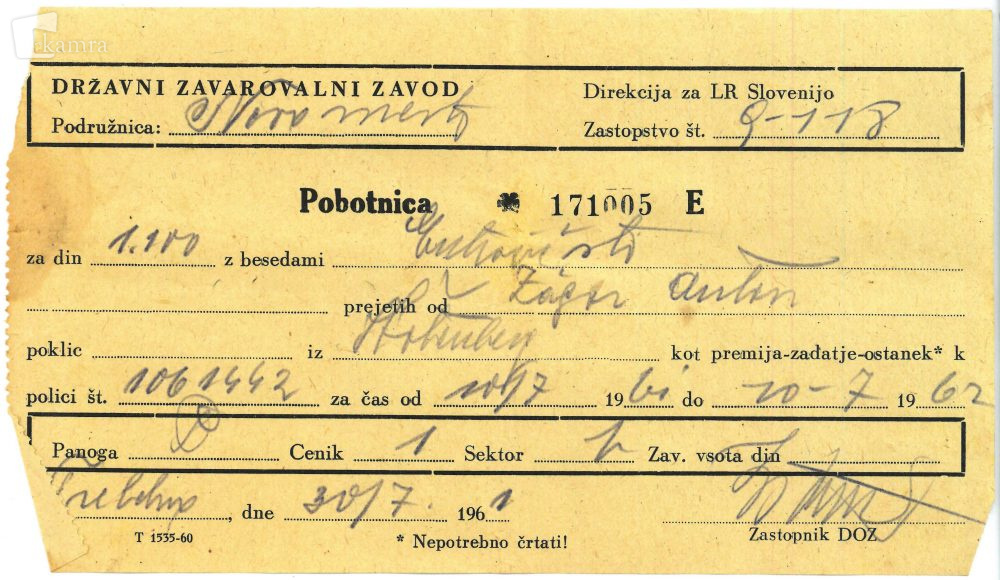 kamra
DRŽAVNI ZAVAROVALNI ZAVOD
Direkcija za LR Slovenijo
Podružnica: Novo mesto
Zastopstvo št. 9-118
Pobotnica 171005 E
za din 1.100 z besedami
prejetih od Žagar Anton
poklic iz kot premija-zadatje-ostanek* k
polici št. 1061442 za čas od 10/7 1961 do 10-7 1962
Panoga Cenik 1 Sektor Zav. vsota din
Trebelno, dne 30/7. 1961
T 1535-60 * Nepotrebno črtati! Zastopnik DOZ